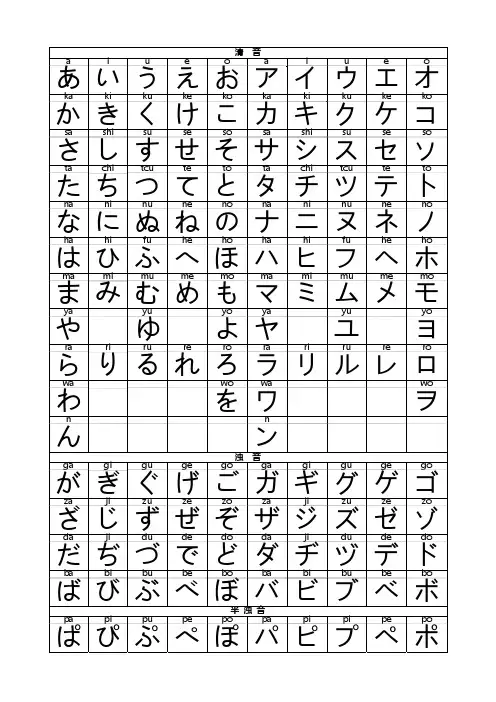 清 音
a i u e o a i u e o
あ い う え お ア イ ウ エ オ
ka ki ku ke ko ka ki ku ke ko
か き く け こ カ キ ク ケ コ
sa shi su se so sa shi su se so
さ し す せ そ サ シ ス セ ソ
ta chi tcu te to ta chi tcu te to
た ち つ て と タ チ ツ テ ト
na ni nu ne no na ni nu ne no
な に ぬ ね の ナ ニ ヌ ネ ノ
ha hi fu he ho ha hi fu he ho
は ひ ふ へ ほ ハ ヒ フ ヘ ホ
ma mi mu me mo ma mi mu me mo
ま み む め も マ ミ ム メ モ
ya yu yo ya yu yo
や ゆ よ ヤ ユ ヨ
ra ri ru re ro ra ri ru re ro
ら り る れ ろ ラ リ ル レ ロ
wa wo wa wo
わ を ワ ヲ
n n
ん ン
浊 音
ga gi gu ge go ga gi gu ge go
が ぎ ぐ げ ご ガ ギ グ ゲ ゴ
za ji zu ze zo za ji zu ze zo
ざ じ ず ぜ ぞ ザ ジ ズ ゼ ゾ
da ji du de do da ji du de do
だ ぢ づ で ど ダ ヂ ヅ デ ド
ba bi bu be bo ba bi bu be bo
ば び ぶ べ ぼ バ ビ ブ ベ ボ
半 浊 音
pa pi pu pe po pa pi pi pe po
ぱ ぴ ぷ ぺ ぽ パ ピ プ ペ ポ